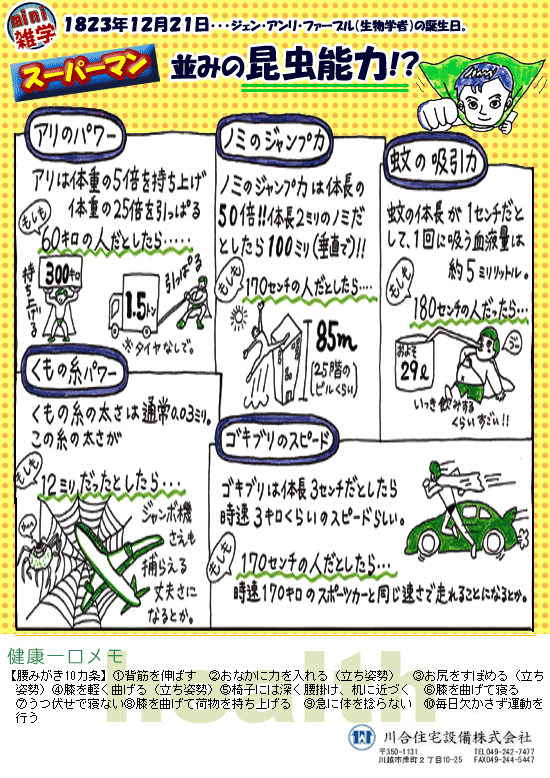 mini
雑学
1823年12月21日・・・ジェン・アンリ・ファーブル(生物学者)の誕生日。
スーパーマン 並みの昆虫能力!?
アリのパワー
アリは体重の5倍を持ち上げ
体重の25倍を引っぱる
もしも
60キロの人だとしたら・・・・・
持ち上げる
300キロ
1.5トン
引っぱる
※タイヤなしで。
ノミのジャンプ力
ノミのジャンプ力は体長の
50倍!!体長2ミリのノミだ
としたら100ミリ(垂直で)!!
もしも
170センチの人だとしたら・・・・
85m
(25階の
ビルくらい)
蚊の吸引力
蚊の体長が1センチだと
して、1回に吸う血液量は
約5ミリリットル。
もしも
180センチの人だったら・・・
およそ
29ℓ
いっき飲みする
くらいすごい!!
くもの糸パワー
くもの糸の太さは通常0.03ミリ。
この糸の太さが
もしも
12ミリだったとしたら・・・・
ジャンボ機
さえも
捕らえる
丈夫さに
なるとか。
ゴキブリのスピード
ゴキブリは体長3センチだとしたら
時速3キロくらいのスピードらしい。
もしも
170センチの人だとしたら・・・
時速170キロのスポーツカーと同じ速さで走れることになるとか。
健康一口メモ
health
【腰みがき10カ条】①背筋を伸ばす ②おなかに力を入れる(立ち姿勢) ③お尻をすぼめる(立ち
姿勢)④膝を軽く曲げる(立ち姿勢)⑤椅子には深く腰掛け、机に近づく ⑥膝を曲げて寝る
⑦うつ伏せで寝ない⑧膝を曲げて荷物を持ち上げる ⑨急に体を捻らない ⑩毎日欠かさず運動を
行う
川合住宅設備株式会社
〒350-1131 TEL049-242-7477
川越市岸町2丁目10-25 FAX049-244-5447